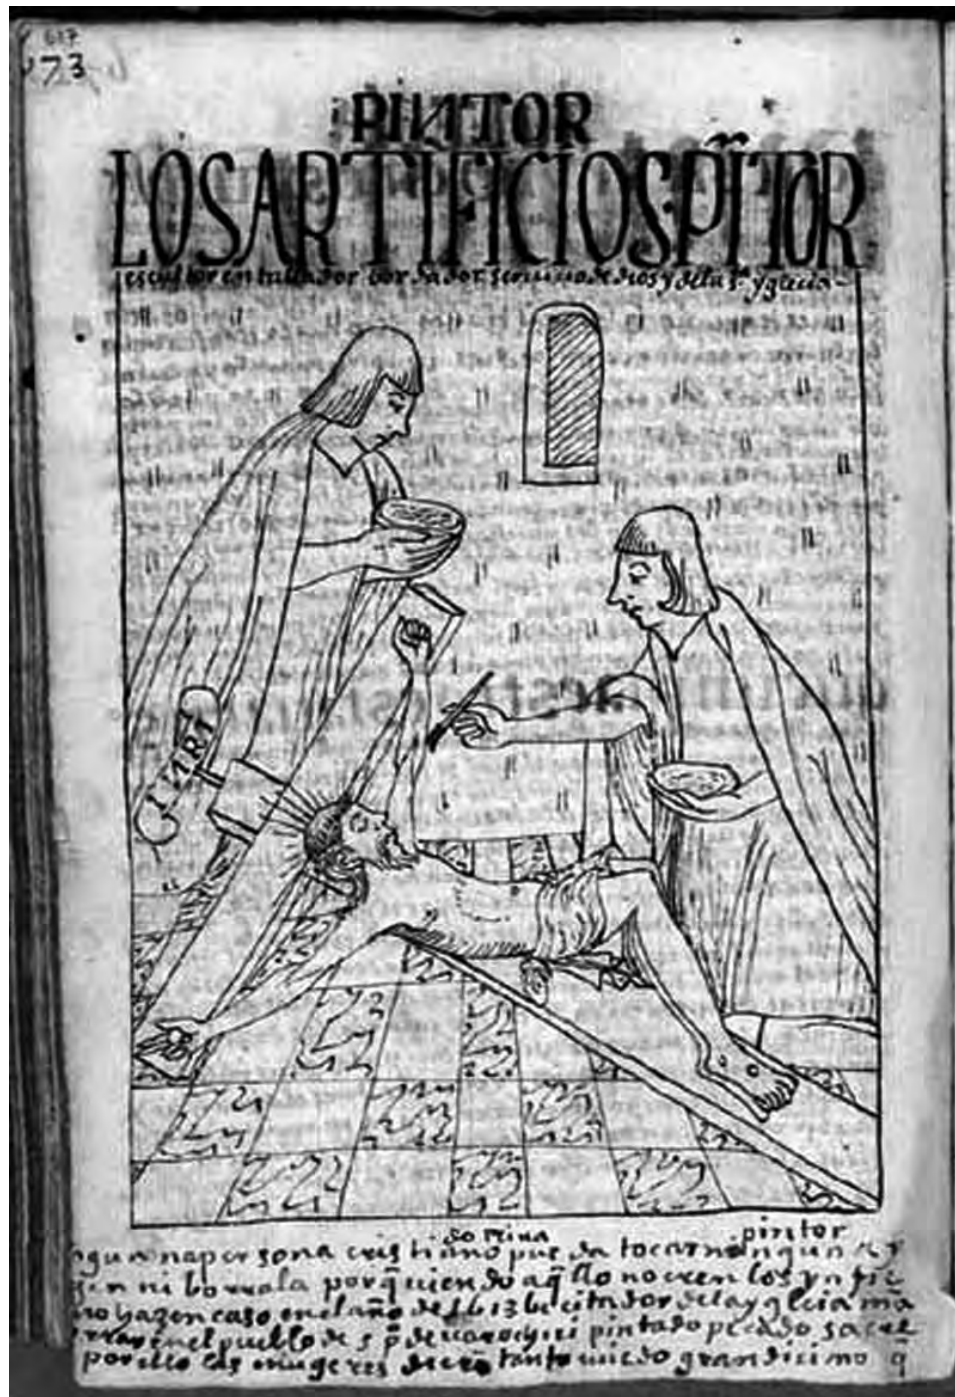 617
673
PINTOR
LOS ARTIFICIOS PĨTOR
escultor entallador bordador seruicio de dios y de la s.ta yglecia
INRI
dotrina pintor
persona cristiano pueda tocar
gen ni borralla porq̃ uiendo aq̃llo no cren los ynfie
no hazen caso en el año de 1613 becitador de la yglecia
en el pueblo de s p̃ de uarochiri pintado pecado
por ello las mugeres tanto miedo grandicimo q̃